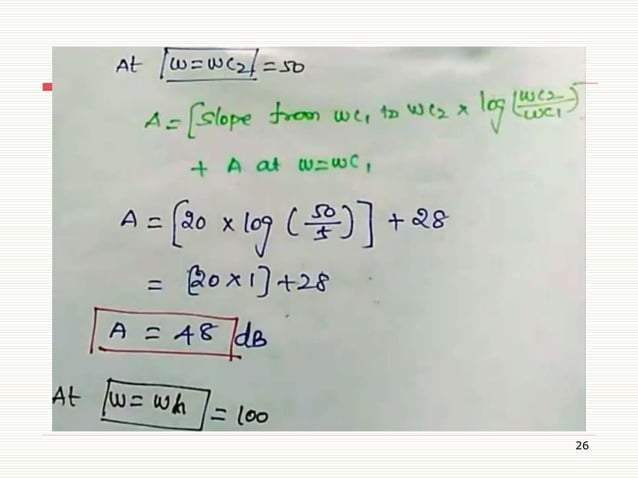 At w=wc2 = 50
A = [Slope from wc1 to wc2 × log (wc2/wc1)
+ A at w=wc1
A = [20 × log (50/5)] + 28
= [20×1]+28
A = 48 dB
At w= wh = 100
26